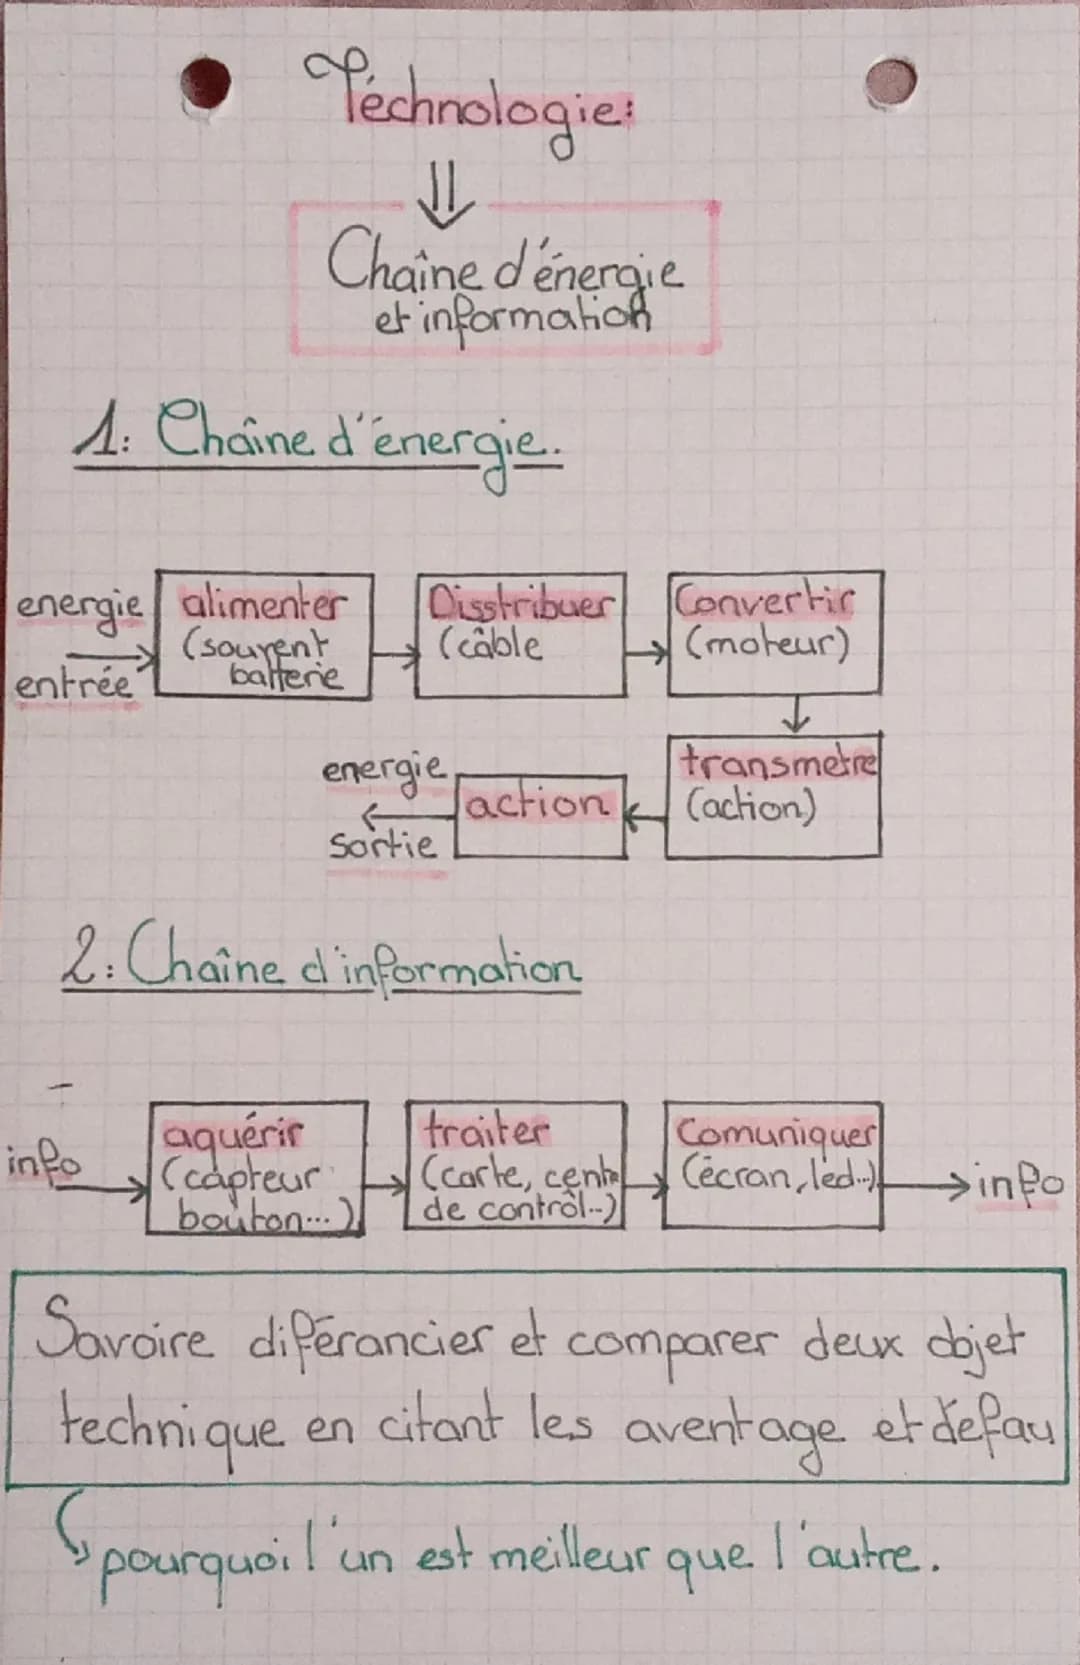 Téchnologie:
Chaîne d'énergie
et information
1: Chaîne d'énergie.
energie
entrée
alimenter
(souvent
batterie
Disstribuer
(câble
Convertir
(moteur)
transmetre
(action)
action
energie
sortie
2: Chaîne d'information
info
aquérir
(capteur
bouton...)
traiter
(carte, cente
de contrôl..)
Comuniquer
(écran, led..)
info
Savoire diférancier et comparer deux objet
technique en citant les aventage et defau
pourquoi l'un est meilleur que l'autre.